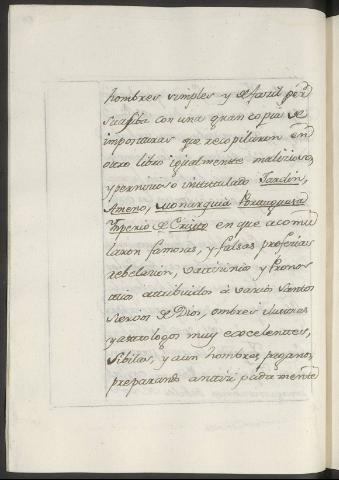 hombres simples y de facil per
suasiba con una gran copia de
imposturas que recopilaron en
otro libro igualmente malizioso,
y pernicioso intitulado Jardin,
Ameno, Monarquia Portuguesa
Imperio de Cristo en que acomu
laron famosas, y falsas profesias
rebelasion, vaticinio y Pronos
ticos atribuidos à varios Santos
Siervos de Dios, ombres ilustres
y astrologos muy excelentes,
Sibilas, y aun hombres paganos,
preparando anticipadamente